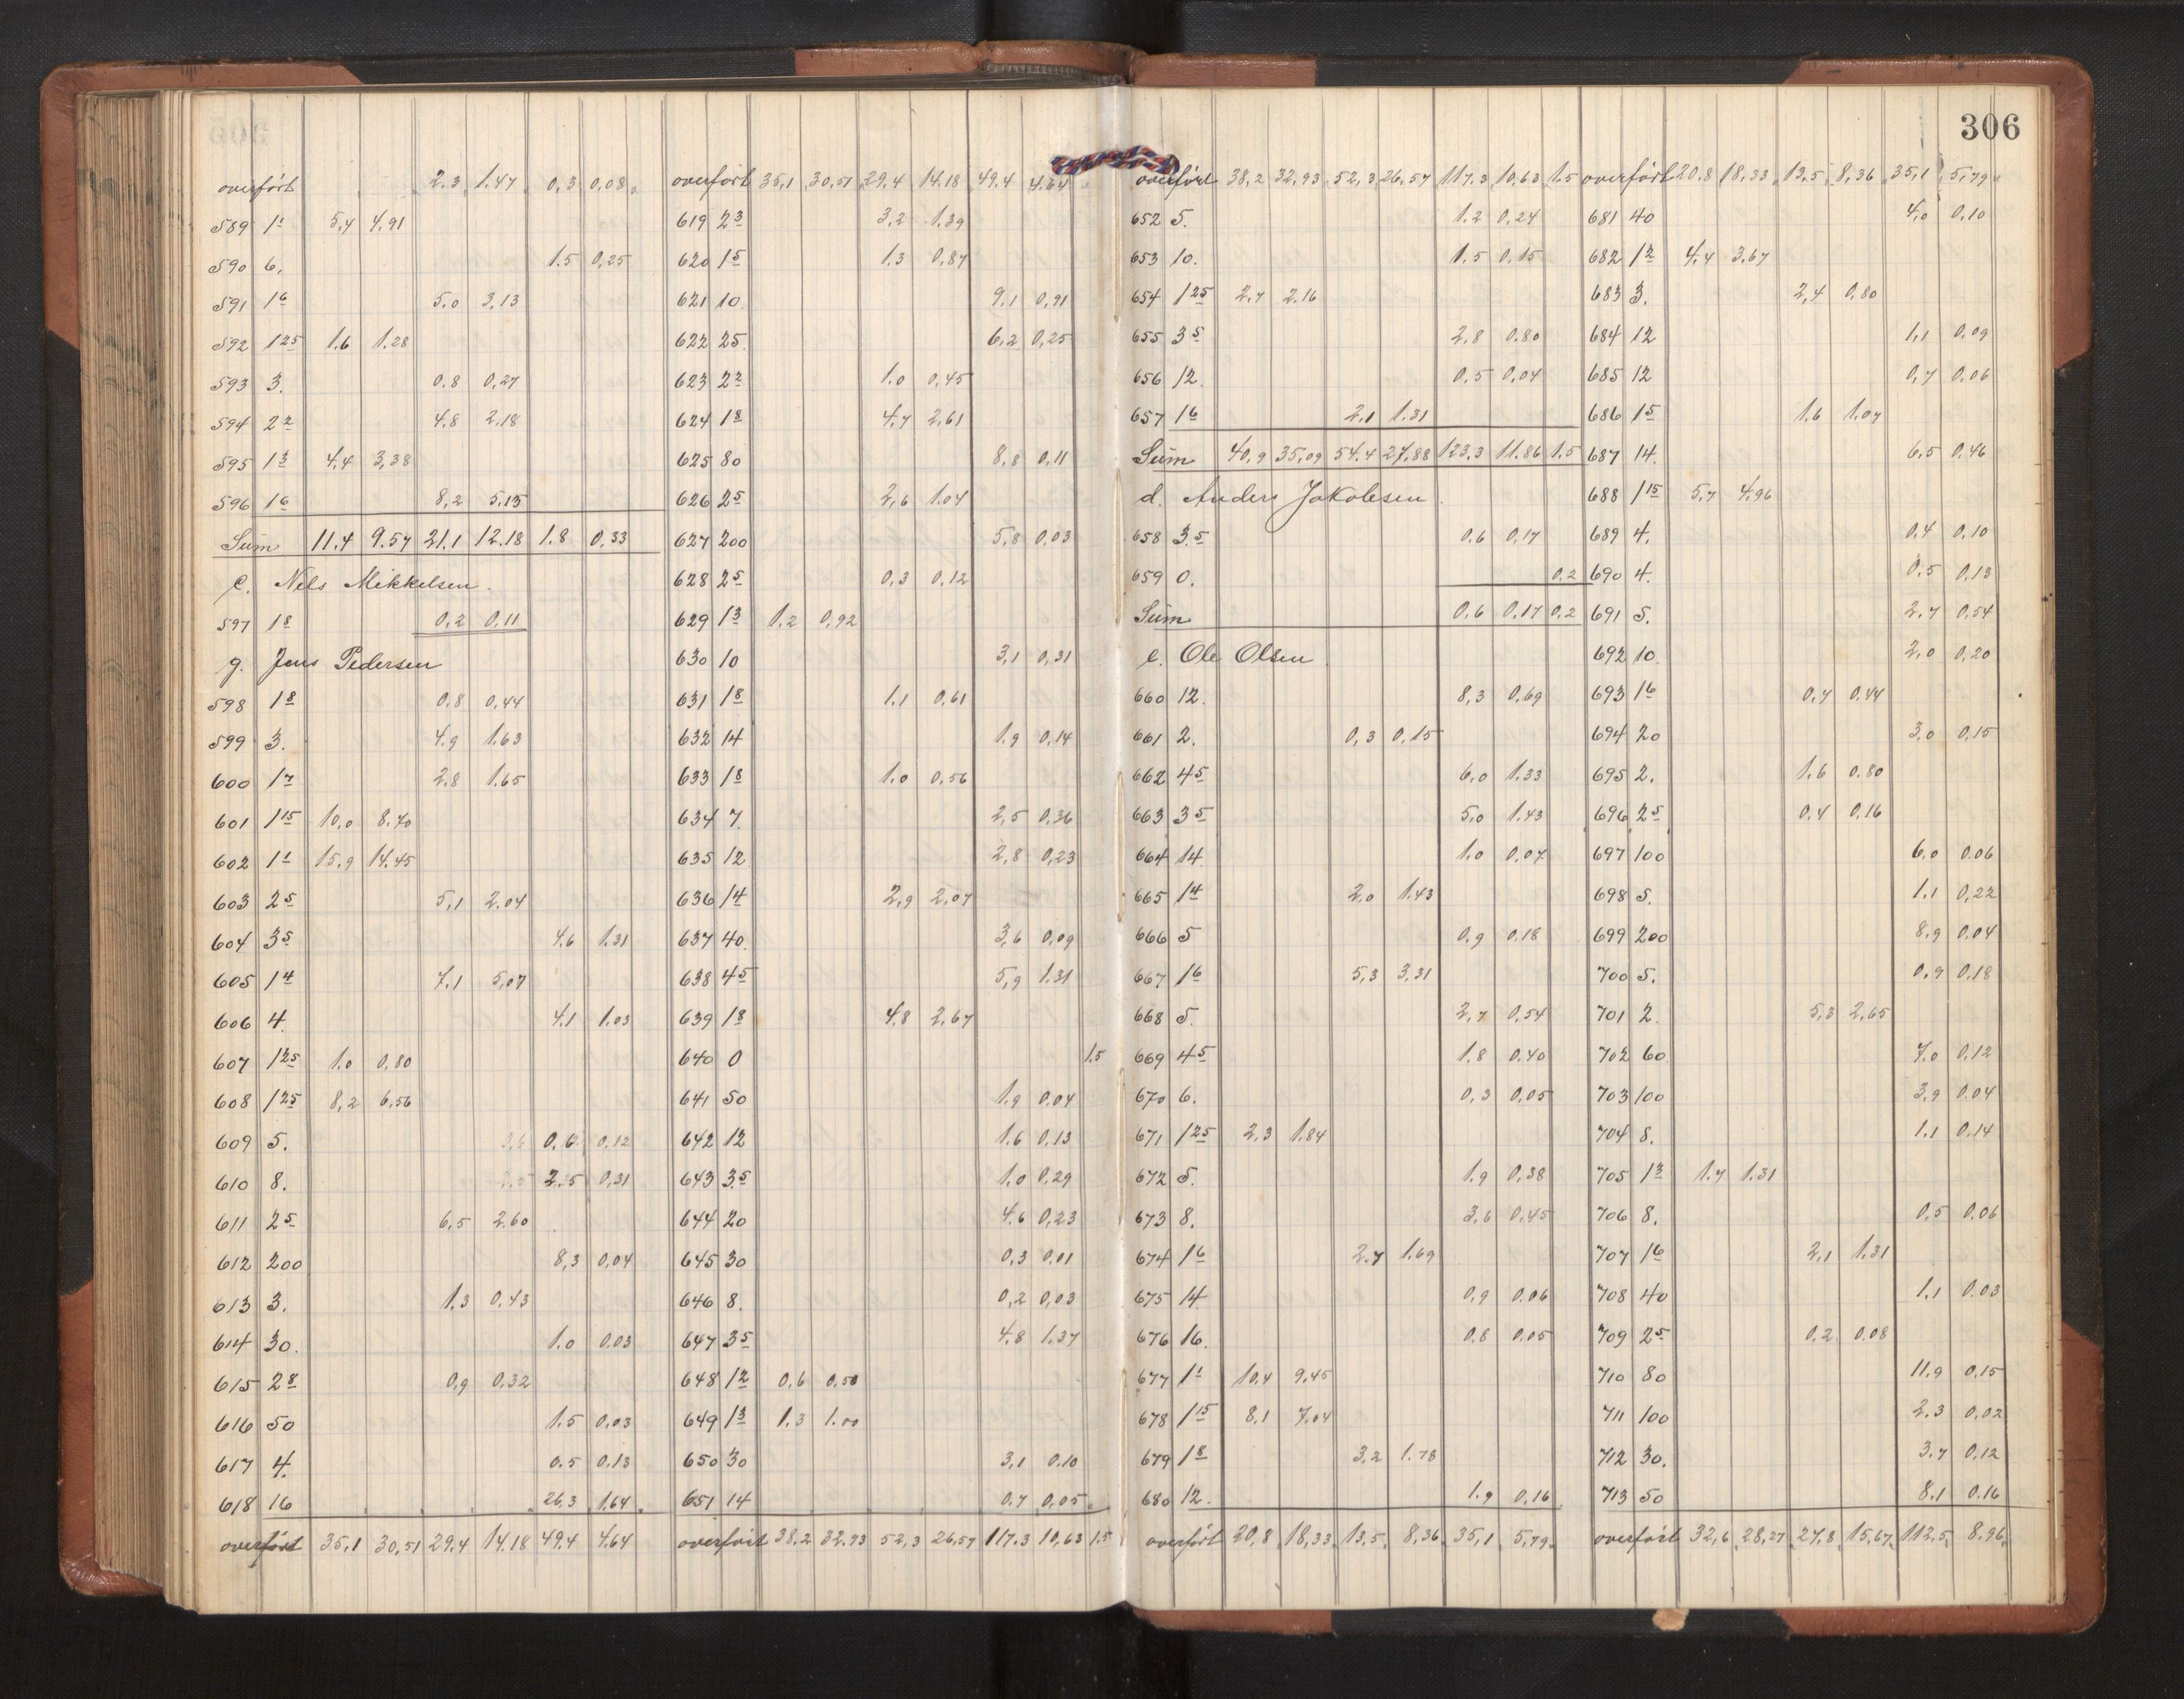 306
overført 2,3 1.47 0,3 0,08
589 1¹ 5,4 4,91
590 6. 1.5 0,25
591 1⁶ 5.0 3,13
592 1²⁵ 1.6 1.28
593 3. 0.8 0,27
594 2² 4.8 2,18
595 1³ 4.4 3,38
596 1⁶ 8,2 5,13
Sum 11.4 9.57 21.1 12.18 1.8 0,33
Nels Mikkelsen.
597 1⁸ 0,2 0,11
g. Jens Pedersen
598 1⁸ 0,8 0,44
599 3. 4.9 1.63
600 1⁷ 2,8 1.65
601 1¹⁵ 10,0 8.70
602 1¹ 15,9 14.45
603 2⁵ 5,1 2.04
604 3⁵ 4,6 1.31
605 1⁴ 7,1 5,07
606 4. 4.1 1.03
607 1²⁵ 1.0 0,80
608 1²⁵ 8,2 6,56
609 5. 0,6 0,12
610 8. 2.5 0,31
611 2⁵ 6,5 2.60
612 200 8,3 0,04
613 3. 1.3 0,43
614 30. 1.0 0,03
615 2⁸ 0,9 0,32
616 50 1.5 0,03
617 4. 0.5 0,13
618 16 26,3 1,64
overført 35,1 30,51 29,4 14.18 49.4 4.64
overført 35,1 30,51 29,4 14.18 49.4 4.64
619 2³ 3,2 1.39
620 1⁵ 1.3 0,87
621 10. 9,1 0,91
622 25. 6,2 0,25
623 2² 1.0 0,45
624 1⁸ 4,7 2,61
625 80 8,8 0,11
626 2⁵ 2,6 1.04
627 200 5,8 0,03
628 2⁵ 0,3 0,12
629 1³ 1,2 0,92
630 10 3,1 0,31
631 1⁸ 1.1 0,61
632 14 1.9 0,14
633 1⁸ 1.0 0,56
634 7. 2,5 0,36
635 12 2,8 0,23
636 1⁴ 2,9 2,07
637 40. 3,6 0,09
638 4⁵ 5,9 1.31
639 1⁸ 4,8 2,67
640 0 1.5
641 50 1.9 0.04
642 12 1.6 0,13
643 3.⁵ 1,0 0,29
644 20 4.6 0,23
645 30 0,3 0,01
646 8. 0,2 0,03
647 3⁵ 4.8 1.37
648 1² 0,6 0,50
649 1³ 1.3 1.00
650 30 3,1 0.10
651 14 0,7 0,05
overført 38,2 32,93 52,3 26,57 117.3 10,63 1.5
overført 38,2 32,93 52,3 26,57 117,3 10,63 1.5
652 5. 1.2 0,24
653 10. 1.5 0,15
654 1²⁵ 2,7 2.16
655 3⁵ 2,8 0.80
656 12. 0,5 0,04
657 1⁶ 2,1 1.31
Sum 40,9 35,09 54.4 27,88 123.3 11.86 1.5
d. Anders Jakobsen.
658 3.⁵ 0.6 0,17
659 0. 0,2
Sum 0,6 0,17 0,2
e. Ole Olsen
660 12. 8,3 0,69
661 2. 0,3 0,15
662 4⁵ 6,0 1.33
663 3⁵ 5,0 1.43
664 14. 1.0 0,07
665 1⁴ 2.0 1.43
666 5 0,9 0.18
667 1⁶ 5,3 3,31
668 5. 2,7 0,54
669 4⁵ 1.8 0.40
670 6. 0,3 0,05
671 1²⁵ 2.3 1.84
672 5. 1,9 0,38
673 8. 3,6 0,45
674 1⁶ 2.7 1.69
675 14 0,9 0.06
676 16. 0.8 0.05
677 1¹ 10,4 9.45
678 1¹⁵ 8,1 7.04
679 1⁸ 3,2 1.78
680 12. 1.9 0,16
overført 20,8 18,33 13,5 8,36 35,1 5,79
overført 20.8 18,33 13,5 8,36 35,1 5,79
681 40 4,0 0,10
682 1² 4,4 3,67
683 3. 2,4 0,80
684 12 1,1 0,09
685 12 0,7 0,06
686 1⁵ 1.6 1.07
687 14. 6,5 0,46
688 1¹⁵ 5,7 4,96
689 4. 0,4 0,10
690 4. 0,5 0,13
691 5. 2,7 0,54
692 10. 2,0 0,20
693 1⁶ 0,7 0,44
694 20 3,0 0,15
695 2. 1.6 0.80
696 2⁵ 0,4 0,16
697 100 6.0 0.06
698 5. 1.1 0,22
699 200 8.9 0.04
700 5. 0,9 0,18
701 2. 5,3 2,65
702 60. 7.0 0,12
703 100 3,9 0.04
704 8. 1.1 0,14
705 1³ 1.7 1.31
706 8. 0,5 0.06
707 1⁶ 2,1 1.31
708 40 1.1 0.03
709 2⁵ 0,2 0,08
710 80 11.9 0,15
711 100 2.3 0,02
712 30. 3,7 0,12
713 50 8.1 0.16
overført 32,6 28,27 27,8 15,67 112,5 8,96